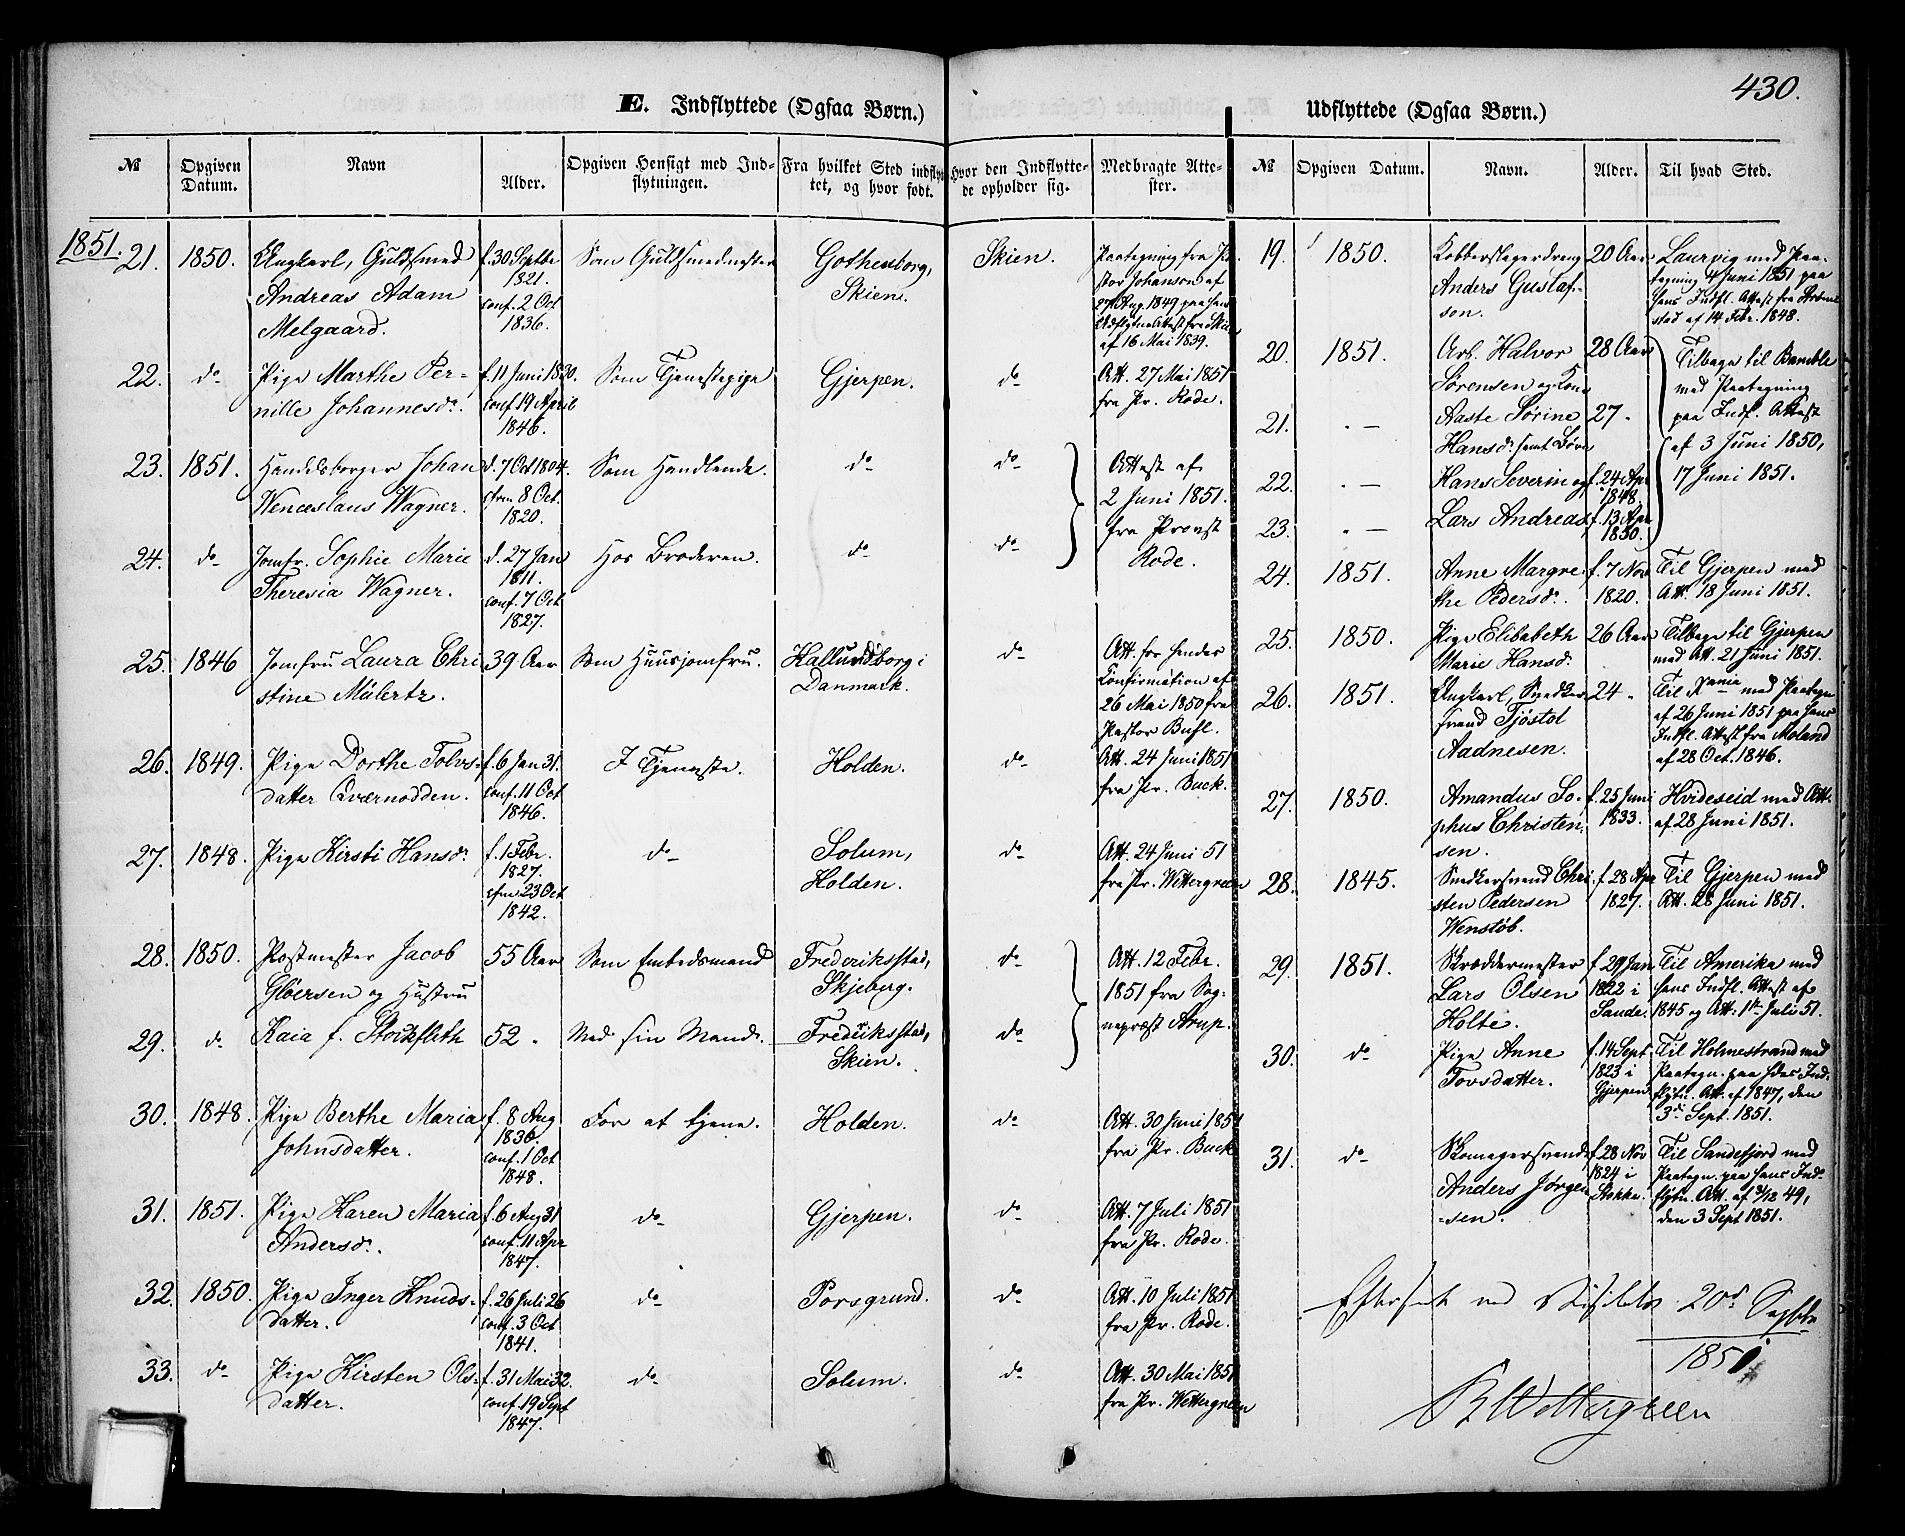 430.
E. Indflyttede (Ogsaa Børn.)
Udflyttede (Ogsaa Børn.)
№ | Opgiven Datum. | Navn | Alder. | Opgiven Hensigt med Indflytningen. | Fra hvilket Sted indflyttet, og hvor født. | Hvor den Indflyttede opholder sig. | Medbragte Attester.
1851.
21. 1850. Ungkarl, Guldsmed f. 30 Septbr Som Guldsmedmester Gothenborg, Skien. Paategning fra Pa-
Andreas Adam 1821. Skien. stor Johanson af
Melgaard. conf. 2 Oct 27 Aug. 1849 paa hans
1836. Udflytnings Attest fra Skien
af 16 Mai 1839.
22. do Pige Marthe Per- f. 11 Juni 1830. Som Tjenestepige Gjerpen. do Att. 27 Mai 1851
nille Johannesdr. conf. 19 April fra Pr. Rode.
1846.
23. 1851. Handelsborger Johan d. 7 Oct 1804. Som Handlende. do do Attest af
Wenceslaus Wagner. cfrm 8 Oct. 2 Juni 1851.
1820. fra Provst
24. do Jomfr. Sophie Marie d. 27 Jan Hos Broderen. do do Rode.
Theresia Wagner. 1811.
conf. 7 Oct
1827.
25. 1846 Jomfru Laura Chri 39 Aar Som Huusjomfru. Kallundborg i do Att. for hendes
stine Mülertz. Danmark. Confirmation af
26 Mai 1850 fra
Pastor Buhl.
26. 1849. Pige Dorthe Tolvs- f. 6 Jan 31. I Tjeneste. Holden. do Att. 24 Juni 1851
datter Qværnodden. conf. 11 Oct fra Pr. Buck.
1846.
27. 1848. Pige Kirsti Hansdr. f. 1 Febr. do Solum, do Att. 24 Juni 51
1827. Holden. fra Pr. Wettergreen
cfm 23 Oct
1842.
28. 1850. Postmester Jacob 55 Aar Som Embedsmand Frederiksstad, do Att. 12 Febr.
Gløersen og Hustru Skjeberg. 1851 fra Sog-
29. do Kaia f. Stockfleth 52 " Med sin Mand. Frederiksstad, do nepræst Arup.
Skien.
30. 1848. Pige Berthe Maria f. 8 Aug For at tjene. Holden. do Att. 30 Juni 1851
Johnsdatter. 1830. fra Pr. Buck
conf. 1 Oct
1848.
31. 1851. Pige Karen Maria f. 6 Aug 31 do Gjerpen. do Att. 7 Juli 1851
Andersdr. conf. 11 Apr fra Pr. Rode.
1847.
32. 1850. Pige Inger Knuds- f. 26 Juli 26 do Porsgrund. do Att. 10 Juli 1851
datter. conf. 3 Oct fra Pr. Rode.
1841.
33. do Pige Kirsten Ols- f. 31 Mai 32. do Solum. do Att. 30 Mai 1851
datter. conf. 19 Sept fra Pr. Wettergreen
1847.
№ | Opgiven Datum. | Navn. | Alder. | Til hvad Sted.
19. 1850. Kobberslagerdreng 20 Aar Laurvig med Paa-
Anders Gustaf- tegning 4 Juni 1851 paa
son. hans Indfl. Attest fra
stad af 14 Febr. 1848.
20. 1851. Arb. Halvor 28 Aar Tilbage til Bamble
Sørensen og Kone med Paategning
21. " — Aaste Sørine 27 " paa Indfl. Attest
Hansdr. samt Børn af 3 Juni 1850,
22. " — Hans Severin og f. 24 Apr 1848. 17 Juni 1851.
23. " — Lars Andreas f. 13 Apr 1850.
24. 1851. Anne Margre- f. 7 Nov Til Gjerpen med
the Pedersdr. 1820. Att. 18 Juni 1851.
25. 1850. Pige Elisabeth 26 Aar Tilbage til Gjerpen
Marie Hansdr. med Att. 21 Juni 1851.
26. 1851. Ungkarl, Snedker 24 " Til Rania med Paategn
svend Tjøstol af 26 Juni 1851 paa hans
Aadnesen. Indfl. Attest fra Moland
af 28 Oct. 1846.
27. 1850. Amandus So- f. 25 Juni Hvideseid med Att.
phus Christen- 1833. af 28 Juni 1851.
sen.
28. 1845. Snedkersvend Chri f. 28 Apr Til Gjerpen med
sten Pedersen 1827. Att. 28 Juni 1851.
Wenstøb.
29. 1851. Skræddermester f. 29 Jan Til Amerika med
Lars Olsen 1822 i hans Indfl. Attest af
Holte. Sande. 1845 og Att. 1ste Juli 51.
30. do Pige Anne f. 14 Sept Til Holmestrand med
Tovsdatter. 1823 i Paategn. paa hdes Ind-
Gjerpen. flytn. Att. af 1847, den
3de Sept. 1851.
31. do Skomagersvend f. 28 Nov Til Sandefjord med
Anders Jørgen 1824 i Paategn. paa hans Ind-
-sen. Stokke. flytn. Att. af 3/12 49,
den 3 Sept 1851.
Efterseet ved Visitats 20de Septbr
1851
Wettergreen